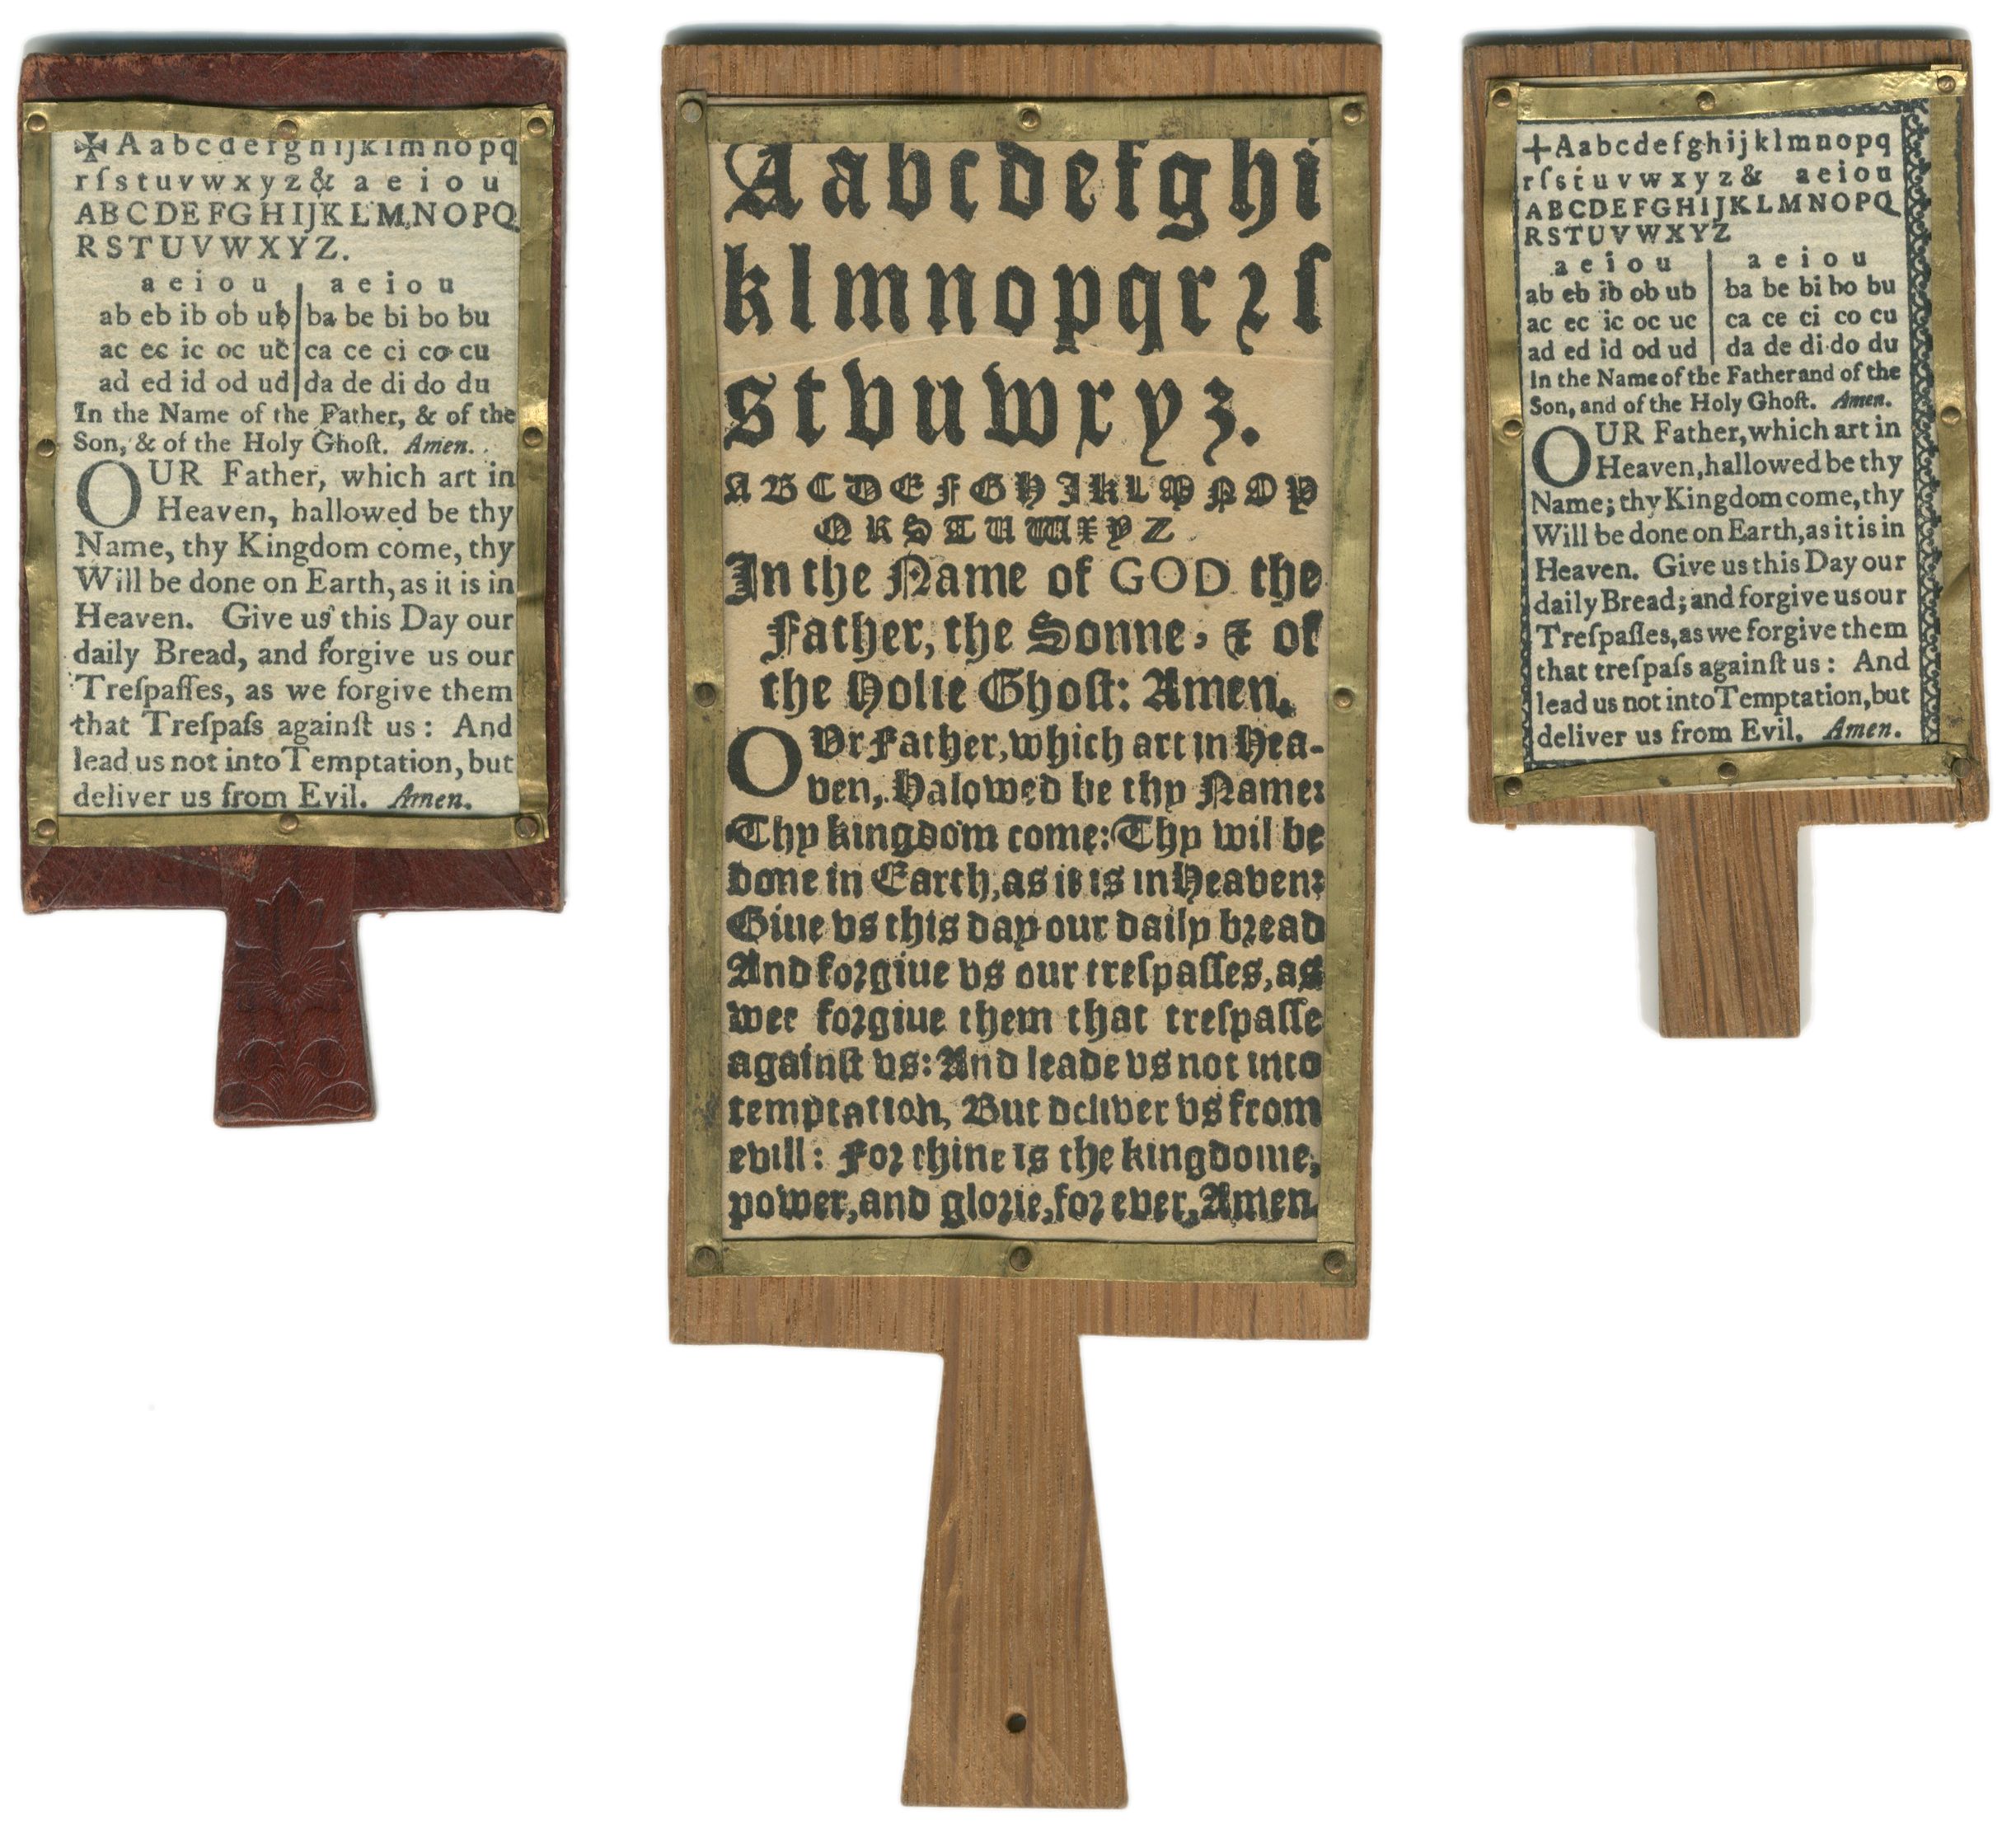 ✠ A a b c d e f g h i j k l m n o p q
r ſ s t u v w x y z & a e i o u
A B C D E F G H I J K L M N O P Q
R S T U V W X Y Z .
a e i o u | a e i o u
ab eb ib ob ub | ba be bi bo bu
ac ec ic oc uc | ca ce ci co cu
ad ed id od ud | da de di do du
In the Name of the Father, & of the
Son, & of the Holy Ghoſt. Amen.
OUR Father, which art in
Heaven, hallowed be thy
Name, thy Kingdom come, thy
Will be done on Earth, as it is in
Heaven. Give us this Day our
daily Bread, and forgive us our
Treſpaſſes, as we forgive them
that Treſpaſs againſt us : And
lead us not into Temptation, but
deliver us from Evil. Amen.
A a b c d e f g h i
k l m n o p q r ꝛ ſ
s t v u w x y z .
A B C D E F G H I K L M N O P
Q R S T U W X Y Z
In the Name of GOD the
Father, the Sonne, & of
the Holie Ghoſt: Amen.
OVr Father, which art in Hea-
ven, Halowed be thy Name:
Thy kingdom come: Thy wil be
done in Earth, as it is in Heaven:
Giue vs this day our daily bꝛead
And foꝛgiue vs our treſpaſſes, as
wee foꝛgiue them that treſpaſſe
againſt vs: And leade vs not into
temptation, But deliver vs from
evill: Foꝛ thine is the kingdome,
power, and gloꝛie, foꝛ ever, Amen.
+ A a b c d e f g h i j k l m n o p q
r ſ s t u v w x y z & a e i o u
A B C D E F G H I J K L M N O P Q
R S T U V W X Y Z
a e i o u | a e i o u
ab eb ib ob ub | ba be bi bo bu
ac ec ic oc uc | ca ce ci co cu
ad ed id od ud | da de di do du
In the Name of the Father and of the
Son, and of the Holy Ghoſt. Amen.
OUR Father, which art in
Heaven, hallowed be thy
Name; thy Kingdom come, thy
Will be done on Earth, as it is in
Heaven. Give us this Day our
daily Bread; and forgive us our
Treſpaſſes, as we forgive them
that treſpaſs againſt us : And
lead us not into Temptation, but
deliver us from Evil. Amen.